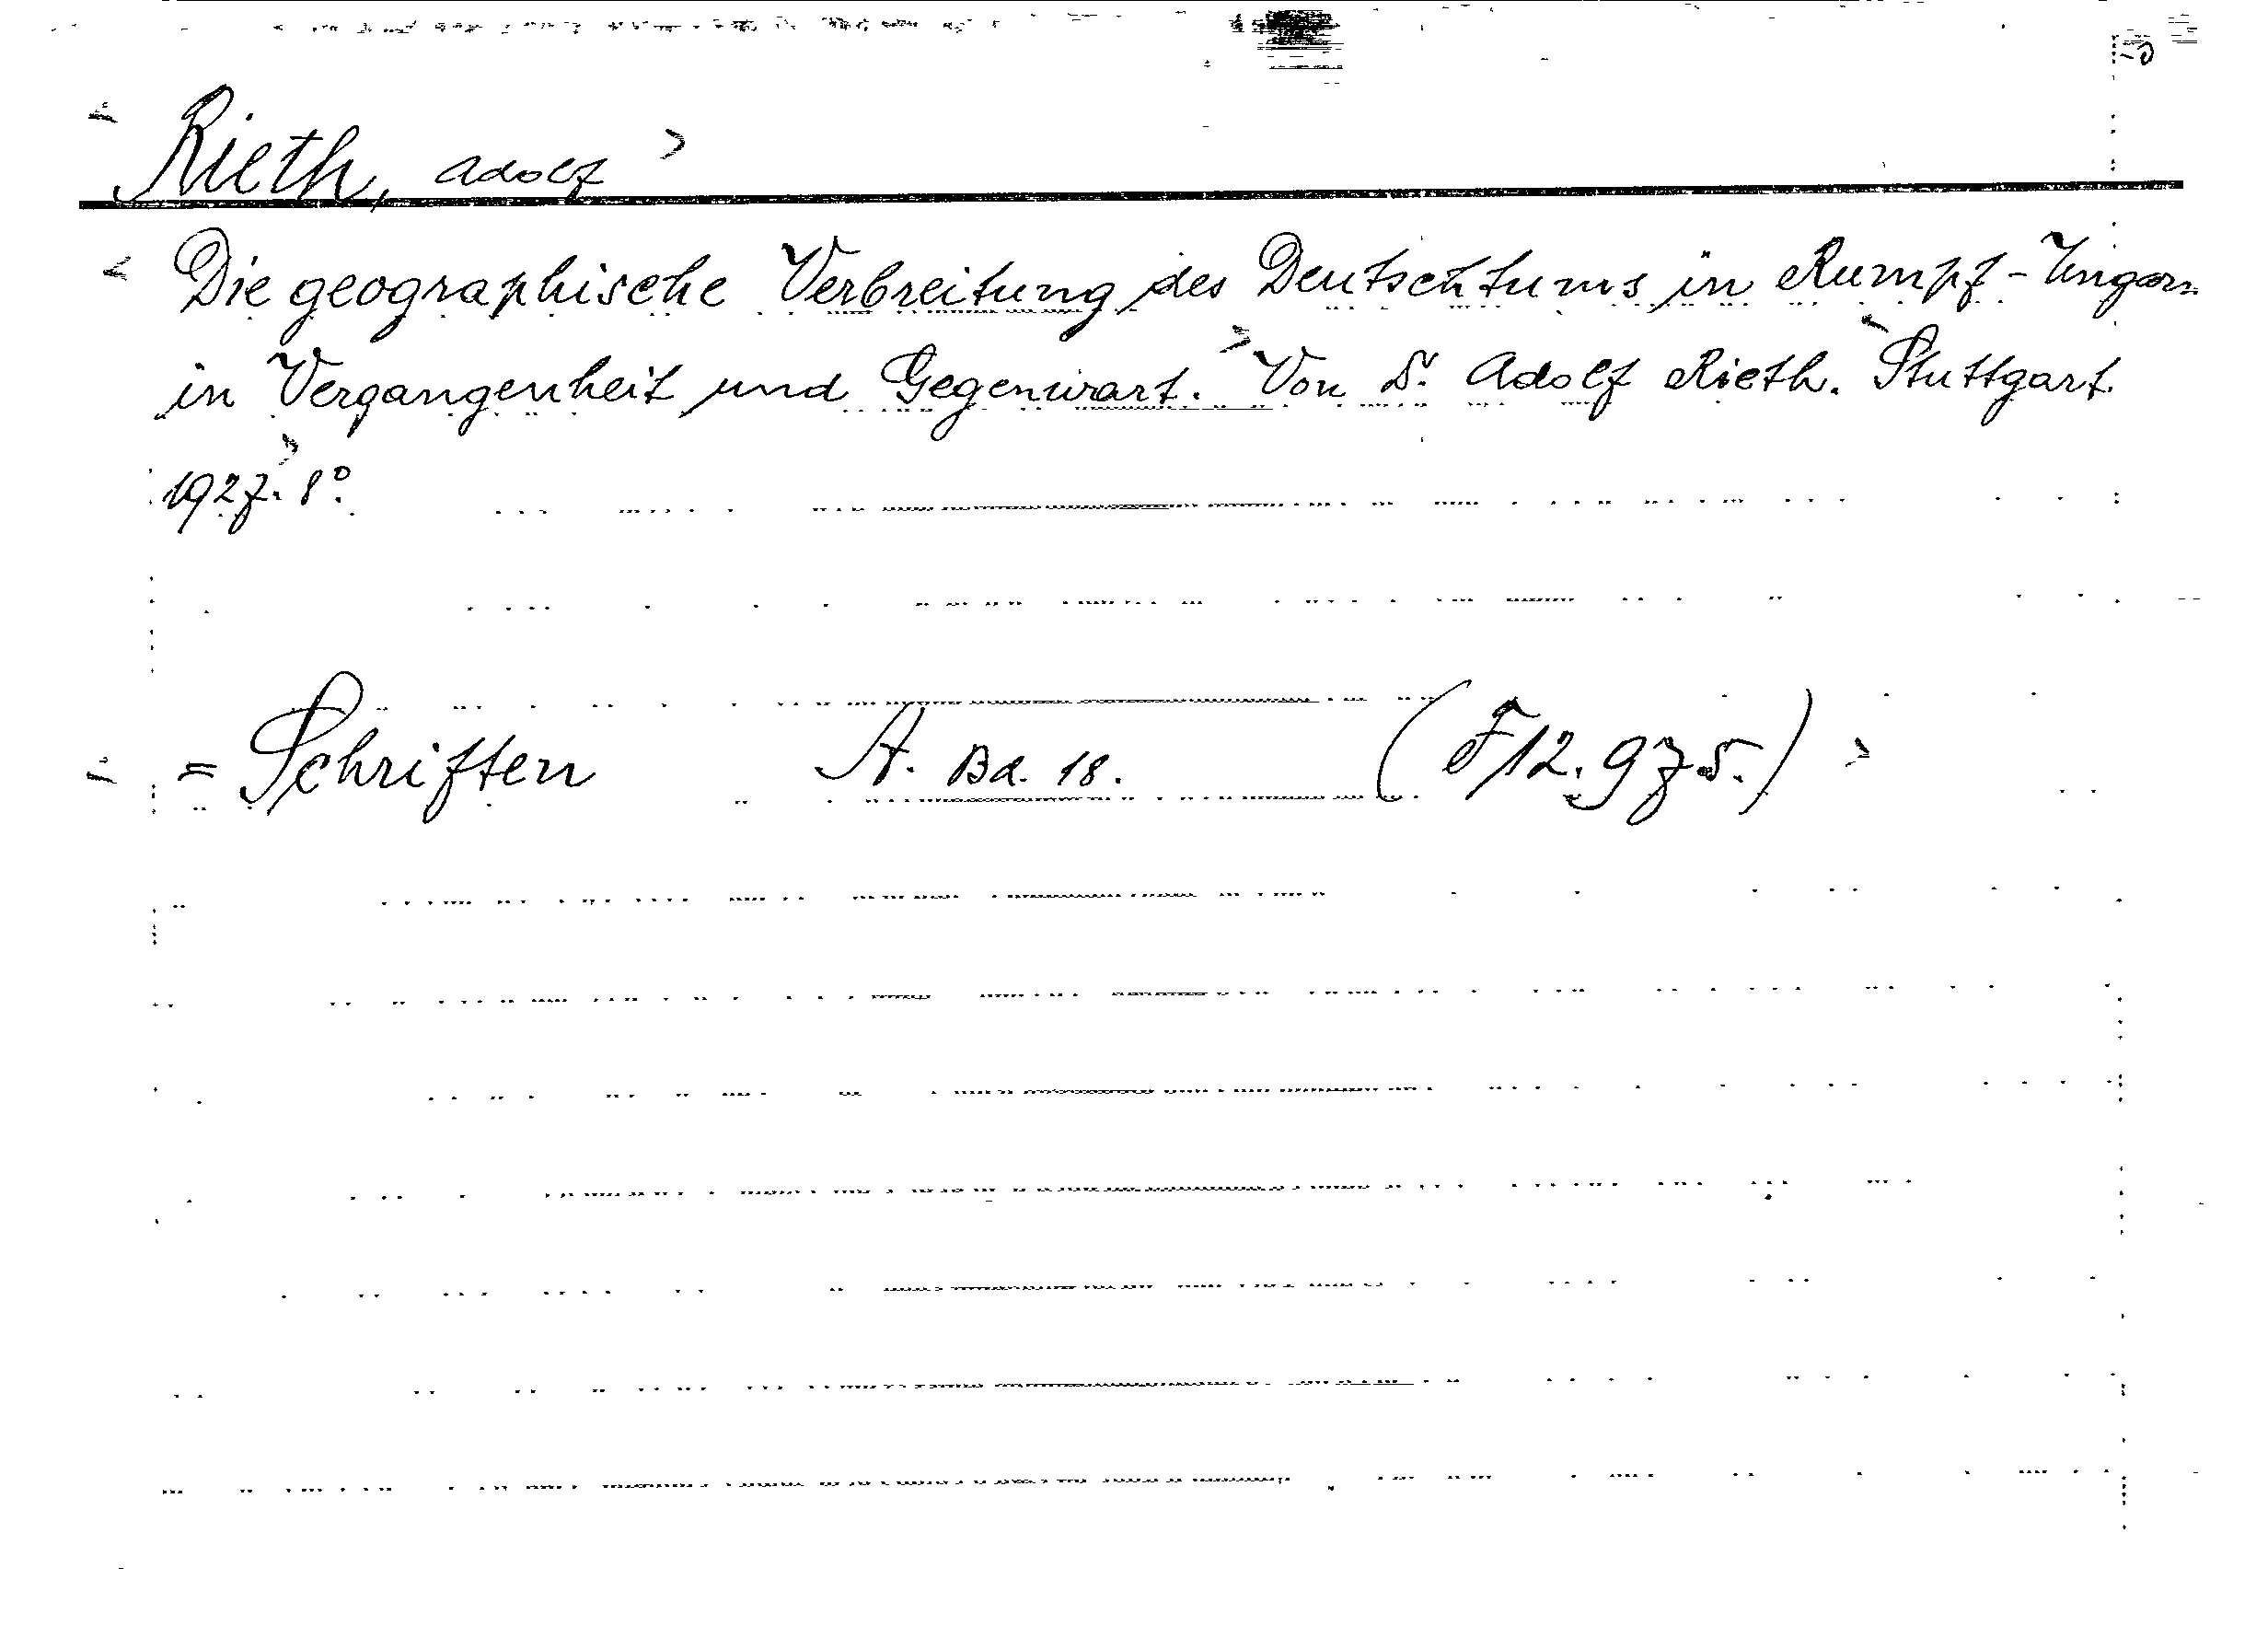 Rieth, Adolf
Die geographische Verbreitung des Deutschtums in Rumpf-Ungarn
in Vergangenheit und Gegenwart. Von Dr. Adolf Rieth. Stuttgart.
1927. 8°.
= Schriften A. Bd. 18. (F 12.975.)